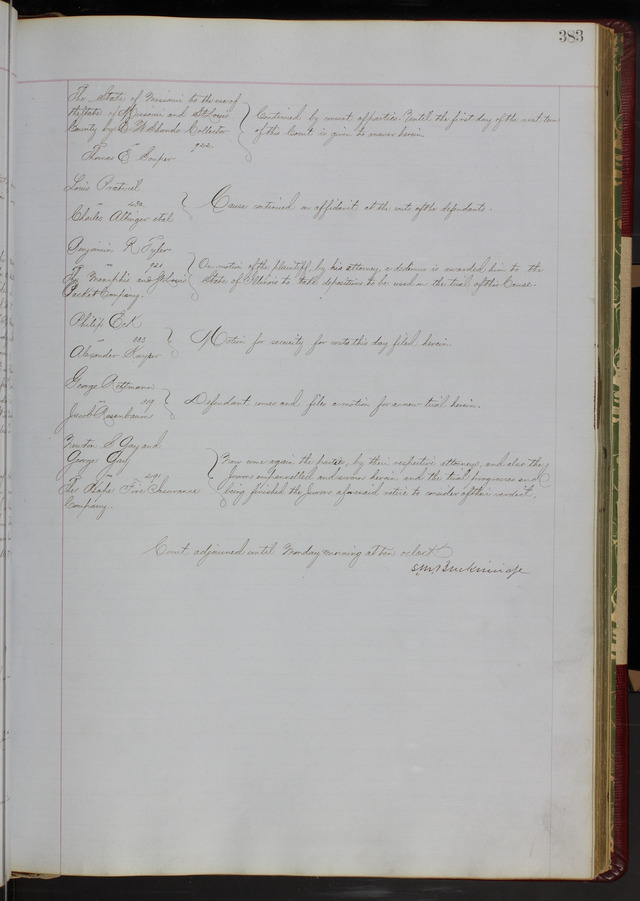 383
The State of Missouri to the use of
the State of Missouri and St Louis
County by Collector
942
Thomas E
Continued by consent of parties. Until the first day of the next term
of this Court is given to answer herein
Louis
Charles et al
Cause continued on affidavit at the costs of the defendants.
Benjamin R Tyler
921
The Memphis and St Louis
Packet Company.
On motion of the plaintiff, by his attorney, a dedimus is awarded him to the
State of Illinois to take depositions to be used on the trial of this Cause.
Philip Eck
Alexander Kayser
Motion for security for costs this day filed herein.
George Rottmann
Jacob Rosenbaum
Defendant comes and files a motion for a new trial herein.
Newton S Gay and
George Gay
The State Fire Insurance
Company.
Now come again the parties, by their respective attorneys, and also the
Jurors empannelled and sworn herein and the trial progresses and
being finished the Jurors aforesaid retire to consider of their verdict.
Court adjourned until Monday morning at ten o'clock